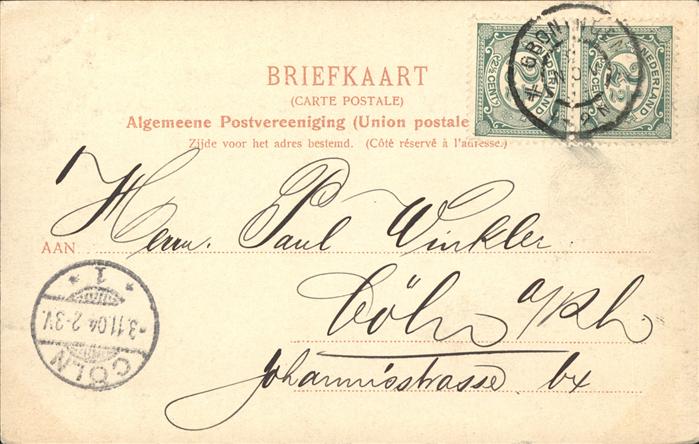 BRIEFKAART
(CARTE POSTALE)
Algemeene Postvereeniging (Union postale
Zijde voor het adres bestemd. (Côté réservé à l'adresse.)
NEDERLAND
2½
2½ CENT
NEDERLAND
2½
2½ CENT
GRONINGEN
AAN
Herrn. Paul Winkler.
Cöln a/Rh
Johannisstrasse
1
-3.11.04.2-3V.
CÖLN